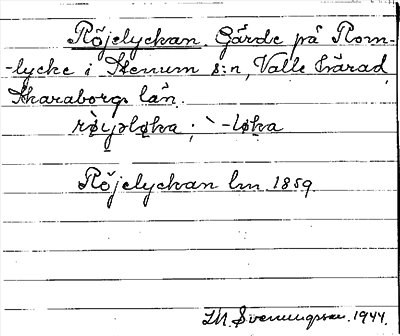 Röjelyckan. Gärde på Rom-
-lycke i Stenum s:n, Valle härad,
Skaraborgs län.
Röjelyckan lm. 1859.
Svenungsson. 1944.